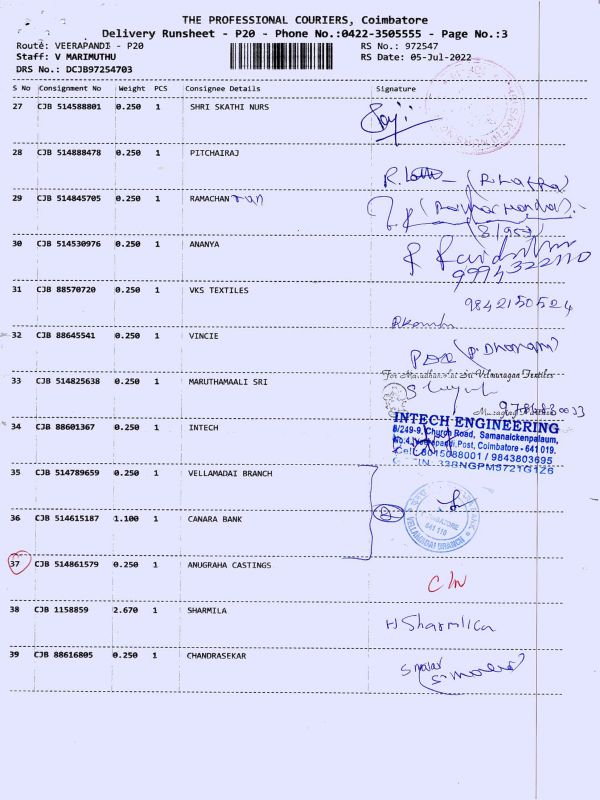 THE PROFESSIONAL COURIERS, Coimbatore
Delivery Runsheet - P20 - Phone No.:0422-3505555 - Page No.:3
Route: VEERAPANDI - P20
RS No.: 972547
Staff: V MARIMUTHU
RS Date: 05-Jul-2022
DRS No.: DCJB97254703
S No Consignment No Weight PCS Consignee Details Signature
27 CJB 514588801 0.250 1 SHRI SKATHI NURS
28 CJB 514888478 0.250 1 PITCHAIRAJ
29 CJB 514845705 0.250 1 RAMACHAN
30 CJB 514530976 0.250 1 ANANYA
31 CJB 88570720 0.250 1 VKS TEXTILES
9842150524
32 CJB 88645541 0.250 1 VINCIE
(P. Dhanam)
33 CJB 514825638 0.250 1 MARUTHAMAALI SRI
34 CJB 88601367 0.250 1 INTECH
INTECH ENGINEERING
8/249-9, Church Road, Samanaickenpalaum,
Post, Coimbatore - 641 019.
Cell: 8015088001 / 9843803695
35 CJB 514789659 0.250 1 VELLAMADAI BRANCH
36 CJB 514615187 1.100 1 CANARA BANK
641 110
VELLAMADAI BRANCH
37 CJB 514861579 0.250 1 ANUGRAHA CASTINGS
38 CJB 1158859 2.670 1 SHARMILA
H Sharmilca
39 CJB 88616805 0.250 1 CHANDRASEKAR